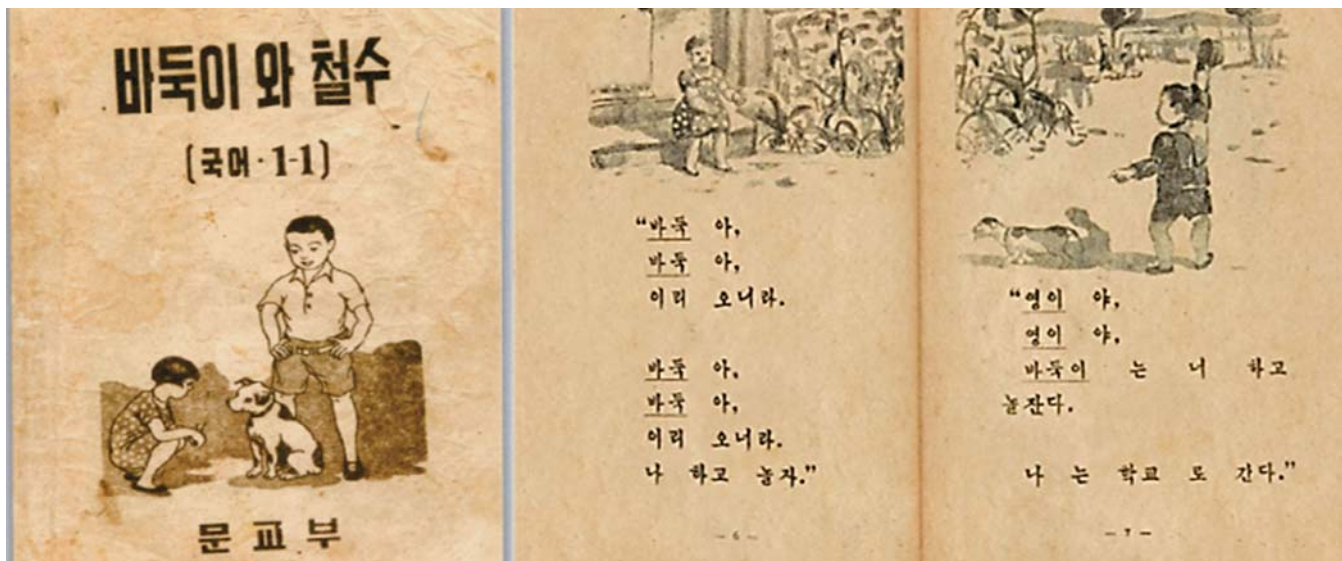 바둑이 와 철수
(국어·1-1)
문교부
“바둑 아,
바둑 아,
이리 오니라.
바둑 아,
바둑 아,
이리 오니라.
나 하고 놀자.”
— 6 —
“영이 야,
영이 야,
바둑이 는 너 하고
놀잔다.
나 는 학교 로 간다.”
— 7 —